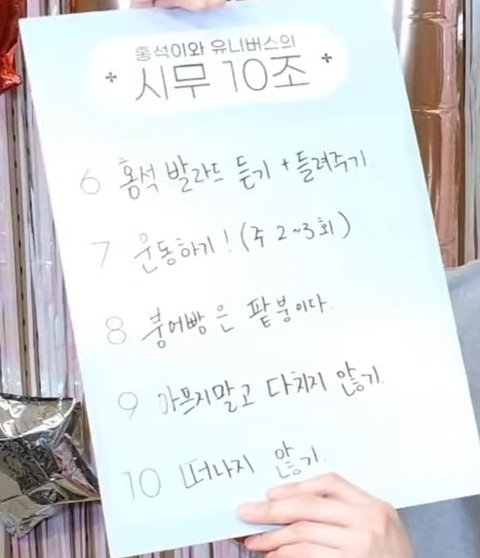 홍석이와 유니버스의
시무 10조
6 홍석 발라드 듣기 + 들려주기.
7 운동하기! (주 2~3회)
8 붕어빵은 팥붕이다.
9 아프지말고 다치지 않기.
10 떠나지 않기.